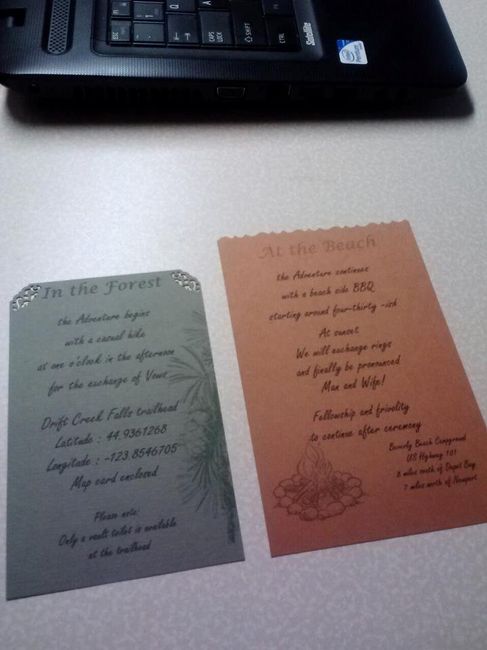 ESC
1
Q
A
CAPS LOCK
SHIFT
CTRL
Satellite
intel
Pentium
In the Forest
the Adventure begins
with a casual hike
at one o'clock in the afternoon
for the exchange of Vows
Drift Creek Falls trailhead
Latitude : 44.9361268
Longitude : -123.8546705
Map card enclosed
Please note:
Only a vault toilet is available
at the trailhead
At the Beach
the Adventure continues
with a beach side BBQ
starting around four-thirty -ish
At sunset
We will exchange rings
and finally be pronounced
Man and Wife!
Fellowship and frivolity
to continue after ceremony
Beverly Beach Campground
US Highway 101
8 miles south of Depoe Bay
7 miles north of Newport